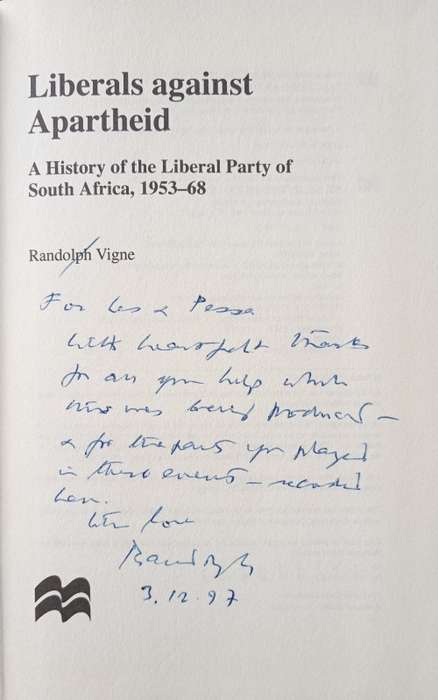 Liberals against
Apartheid
A History of the Liberal Party of
South Africa, 1953–68
Randolph Vigne
For Les & Pessa
with heartfelt thanks
for all your help while
this was being produced –
& for the part you played
in these events – recorded
here.
With love
Randolph
3.12.97